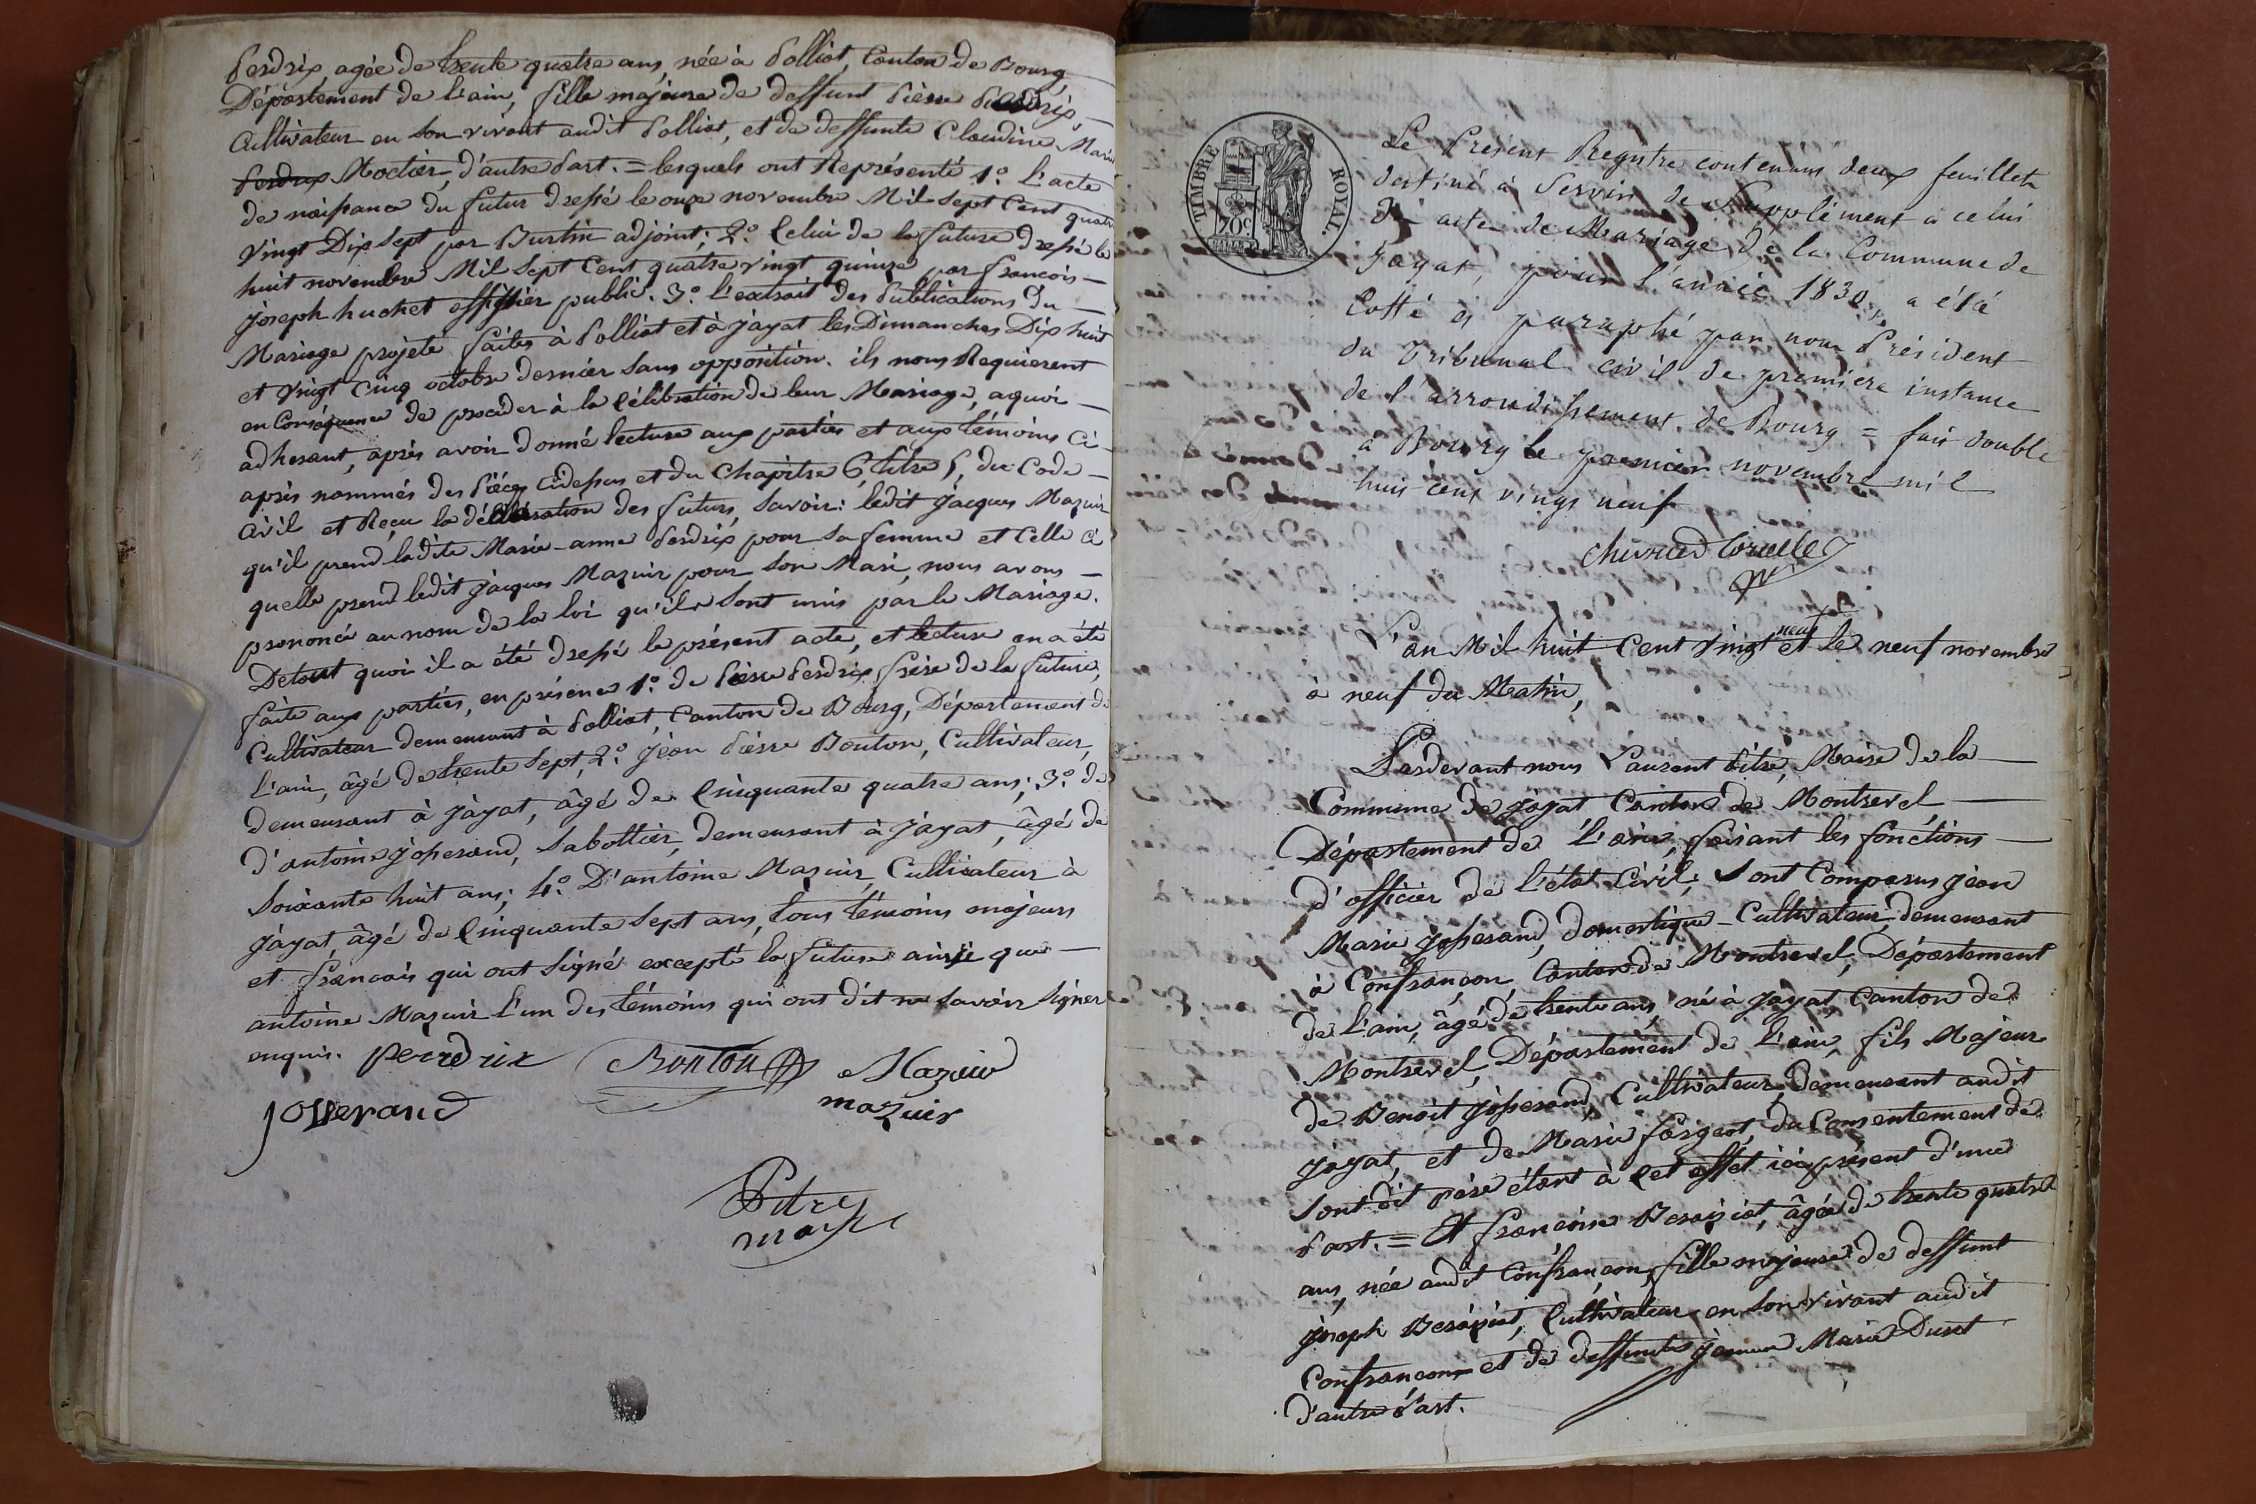 Perdrix, agée de trente quatre ans, née à Polliat, Canton de Bourg,
Département de l'ain, fille majeure de deffunt Pièrre Perdrix,
Cultivateur en son vivant audit Polliat, et de deffunte Claudine Marie
Perdrix Moctier, d'autre Part. = lesquels ont Représenté 1.° L'acte
de naissance du futur dressé le onze novembre Mil Sept Cent quatre
Vingt Dix Sept par Burtin adjoint; 2.° Celui de la future dressé le
huit novembre Mil Sept Cent quatre vingt quinze par francois
joseph huchet officier public. 3.° L'extrait des Publications du
Mariage projeté faites à Polliat et à jayat les Dimanches Dix huit
et Vingt Cinq octobre dernier sans opposition. ils nous Requièrent
en Conséquence de procéder à la Célébration de leur Mariage, aquoi
adhesant, après avoir donné lecture aux parties et aux témoins Ci-
après nommés des Pièces cidessus et du Chapitre 6, titre 5, du Code
Civil et Reçu la déclaration des futurs, Savoir: ledit jacques Mazuir
qu'il prend ladite Marie-anne Perdrix pour sa femme et Celle ci
quelle prend ledit jacques Mazuir pour Son Mari, nous avons
prononcé au nom de la loi qu'ils Sont unis par le Mariage.
Detout quoi il a été dressé le présent acte, et lecture en a été
faite aux parties, en présence 1.° de Pièrre Perdrix frère de la future,
Cultivateur demeurant à Polliat, Canton de Bourg, Département de
L'ain, âgé de trente Sept, 2.° jean Pièrre Bonton, Cultivateur,
demeurant à jayat, âgé de Cinquante quatre ans; 3.° de
d'antoine josserand, Sabottier, demeurant à jayat, âgé de
Soixante huit ans; 4.° D'antoine Mazuir, Cultivateur à
jayat, âgé de Cinquante Sept ans, tous témoins majeurs
et francais qui ont Signé excepté la future ainsi que
antoine Mazuir l'un des témoins qui ont dit ne savoir Signer
enquis. perrdrix Bonton Mazuir
josserand mazuir
Pitre
maire
TIMBRE ROYAL.
70c.
Le Présent Registre contenant deux feuillets
destiné à Servir de Supplément à celui
d' acte de Mariage de la Commune de
Jayat, pour l'année 1830, a été
Cotté et paraphé par nous Président
du Tribunal civil de première instance
de l'arrondissement de Bourg = fait double
à Bourg le premier novembre mil
huit cent vingt neuf
L'an Mil huit Cent Vingt neuf et le neuf novembre
à neuf du Matin,
Pardevant nous Laurent Pitre, Maire de la
Commune de jayat Canton de Montrevel
Département de L'ain, faisant les fonctions
d'officier de l'état Civil; Sont Comparus jean
Marie josserand, domestique-Cultivateur, demeurant
à Confrançon, Canton de Montrevel, Département
de L'ain, âgé de trente ans, né à jayat, Canton de
Montrevel, Département de L'ain, fils Majeur
de Benoit josserand, Cultivateur, demeurant audit
jayat, et de Marie fargeot, du Consentement de
Sont dit père étant à Cet effet ici présent d'une
Part. = Et françoise Beraiziat, âgée de trente quatre
ans, née audit Confrançon, fille majeure de deffunt
joseph Beraiziat, Cultivateur en son vivant audit
Confrançon et de deffunte jeanne Marie Duret
d'autre Part.